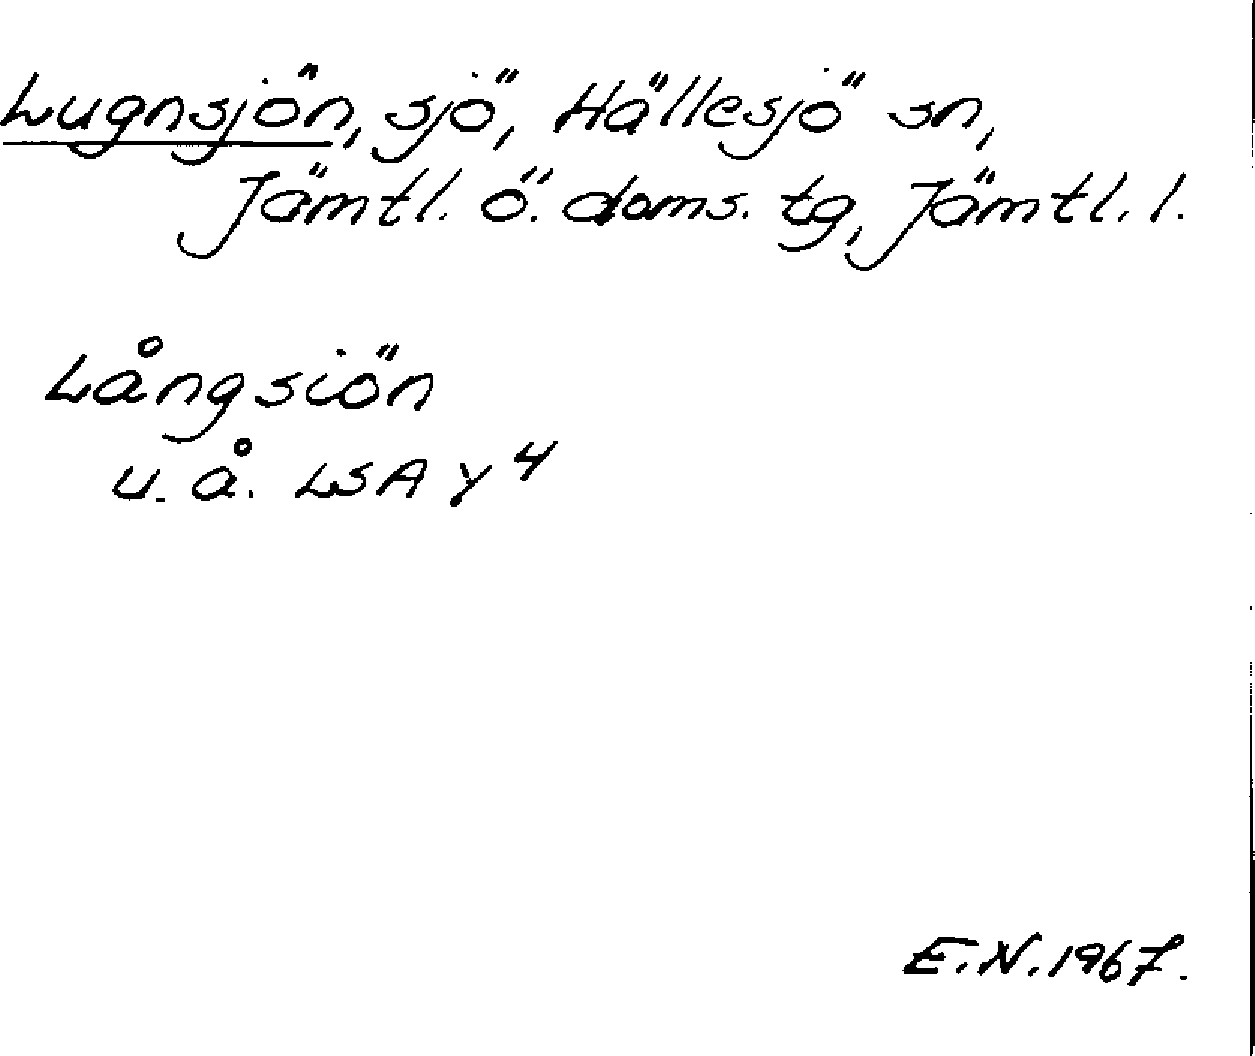 Lugnsjön, sjö, Hällesjö sn,
Jämtl. ö. doms. tg, Jämtl. l.
Långsiön
u. å. LSA Y 4
E. N. 1967.